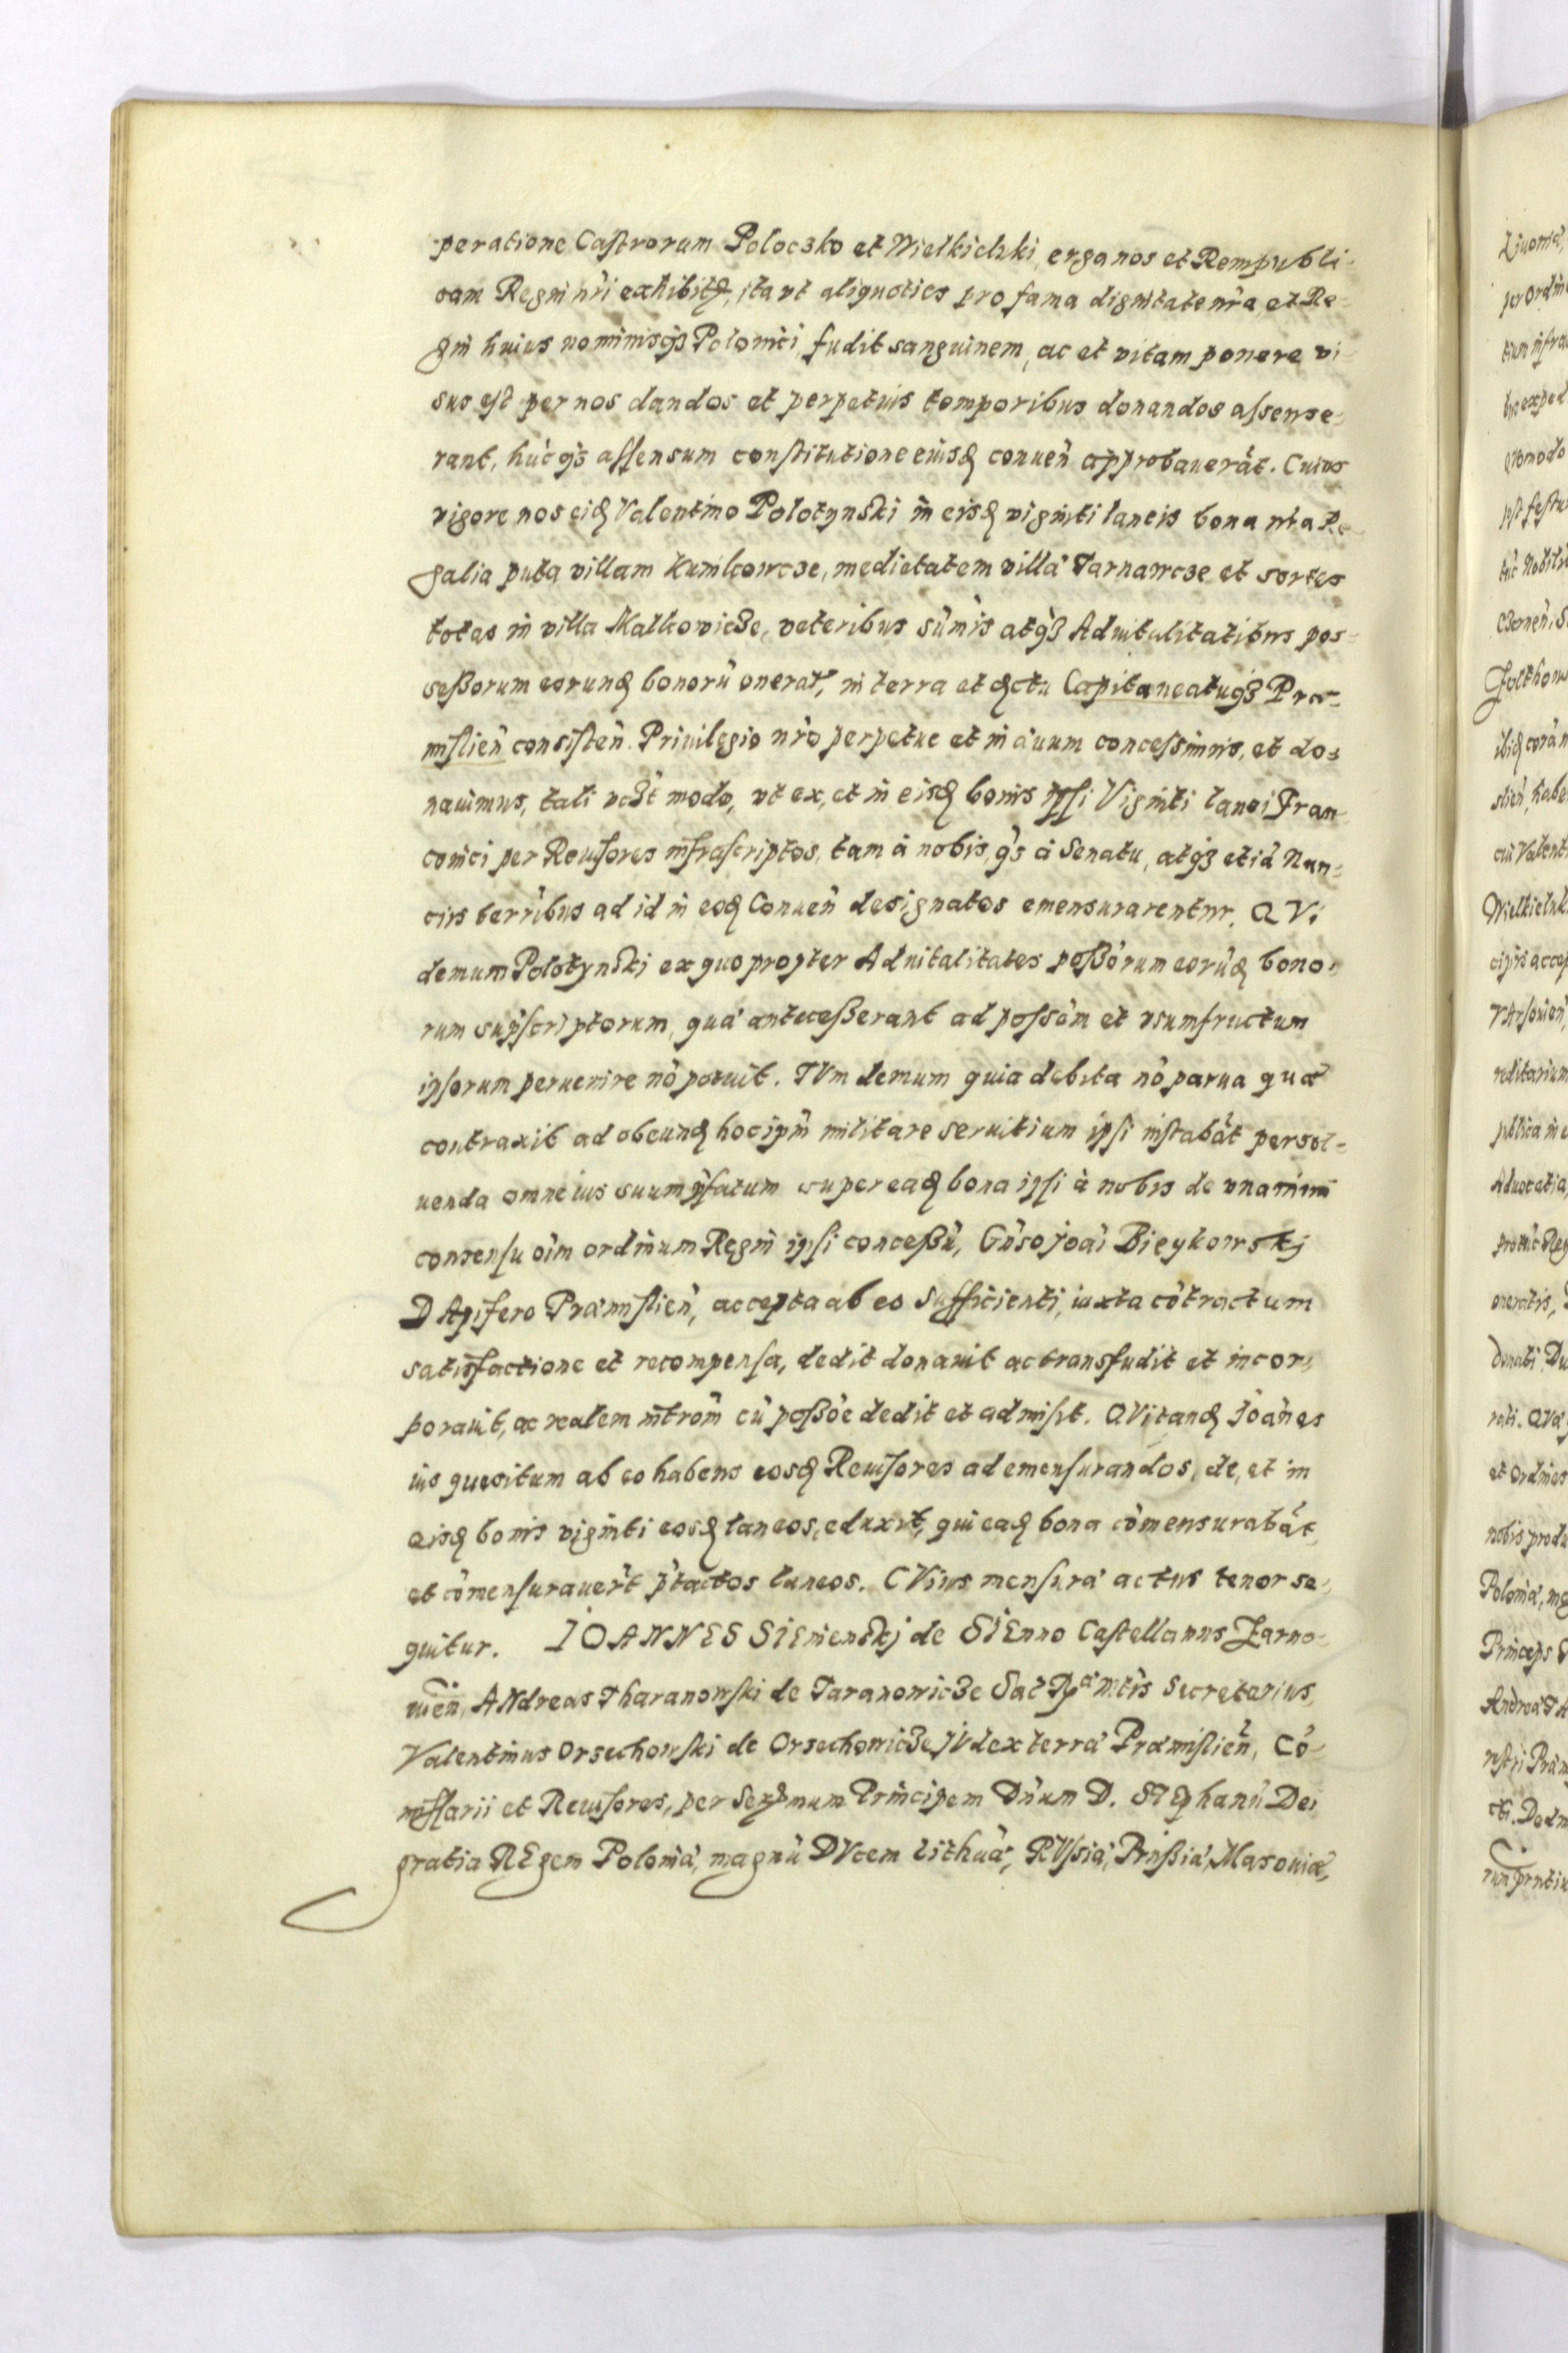 peratione Castrorum Poloczko et Wielkieluki, erga nos et Rempubli-
cam Regni nr̃i exhibitę, ita vt aliquoties pro fama dignitate nr̃a, et Re-
gni huius nominisq̃ Polonici fudit sanguinem, ac et vitam ponere vi-
sus est per nos dandos et perpetuis temporibus donandos assense-
rant, hũcq̃ assensum constitutione eiusd̃ conueñ approbauerãt. Cuius
vigore nos eid̃ Valentino Polotynski in eisd̃ viginti laneis bona nr̃a Re-
galia puta villam Kunkowcze, medietatem villæ Tarnawcze et sortes
totas in villa Malkowicze, veteribus sũmis atq̃ Aduitalitatibus pos-
seßorum eorund̃ bonorũ onerat, in terra et d̃ctu Capitaneatuq̃ Præ-
misłieñ consisteñ. Priuilegio nr̃o perpetue et in æuum concessimus, et do-
nauimus, tali vczt modo, vt ex, et in eisd̃ bonis ipsi Viginti lanei Fran-
conici per Reuisores infrascriptos, tam à nobis, q̃s à Senatu, atq̃ etiã Nun-
ciis terrr̃ibus ad id in eod̃ Conueñ designatos emensurarentur. QVi
demum Polotynski ex quo propter Aduitalitates poßorum eorũd̃ bono-
rum supscriptorum, quæ anteceßerant ad possõm et vsumfructum
ipsorum peruenire nõ potuit. TVm demum quia debita nõ parua quæ
contraxit ad obeund̃ hoc ipm̃ militare seruitium ipsi instabãt persol-
uenda omne ius suum p̃fatum super ead̃ bona ipsi à nobis de vnanimi
consensu oĩm ordinum Regni ipsi conceßũ, Gñso Joãi Bieykowskj
DApifero Præmisłieñ, accepta ab eo sufficienti, iuxta cõtractum
satisfactione et recompensa, dedit donauit ac transfudit et incor-
porauit, ac realem intrõm cũ poßõe dedit et admisit. QVi tand̃ Joãnes
ius quesitum ab eo habens eosd̃ Reuisores ad emensurandos, de, et in
eisd̃ bonis viginti eosd̃ laneos, eduxit, qui ead̃ bona cõmensurabãt,
et cõmensurauer̃t p̃tactos laneos. CVius mensuræ actus tenor se-
quitur. IOANNES SIEnienskj de SIEnno Castellanus Zarno-
uieñ, ANdreas Tharanowski de Taranowicze Sac Ræ Mtis Secretarius,
Valentinus Orsechowski de Orsechowicze JVdex terræ Præmisłieñ, Cõ-
missarii et Reuisores, per Sermum Principem Dñum D. STEphanũ Dei
gratia REgem Poloniæ, magnũ DVcem Lithuæ, RVssiæ, Prußiæ, Masouiæ,